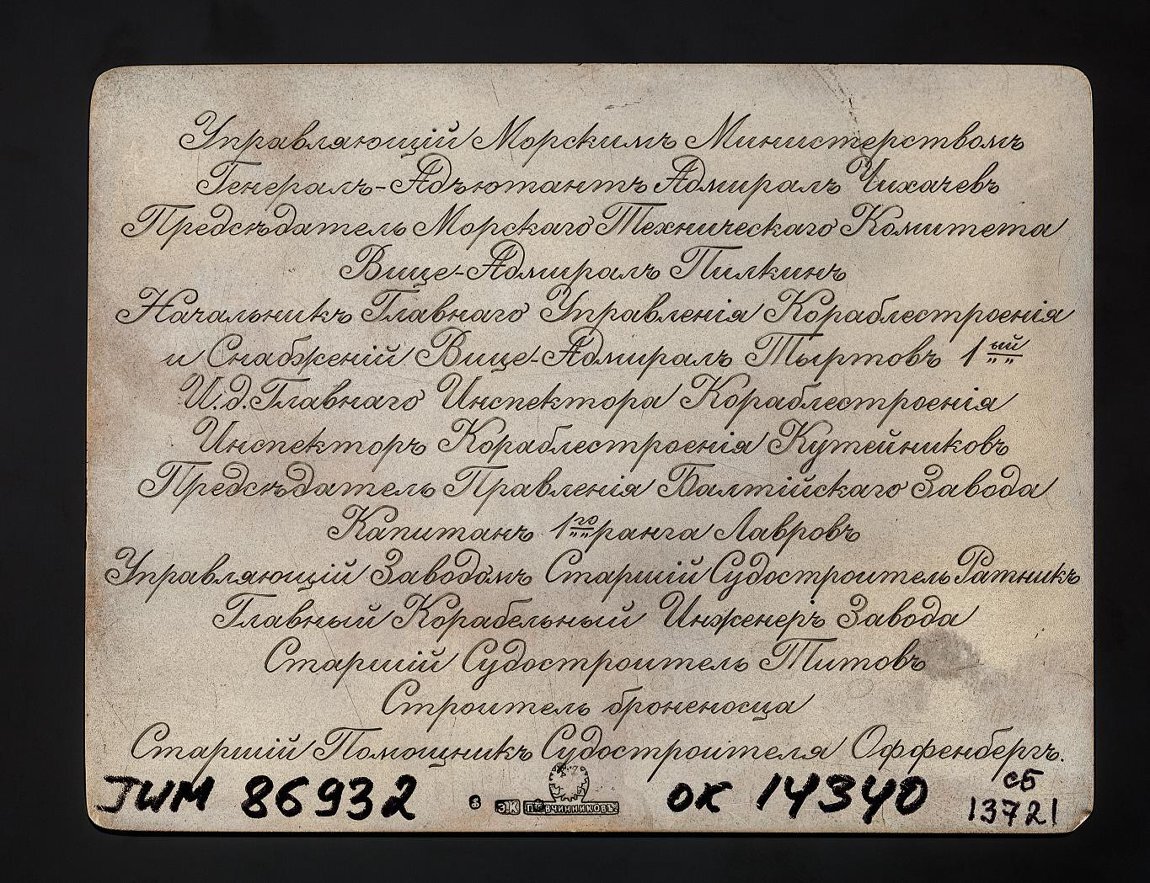 Управляющій Морскимъ Министерствомъ
Генералъ-Адъютантъ Адмиралъ Чихачевъ
Предсѣдатель Морскаго Техническаго Комитета
Вице-Адмиралъ Пилкинъ
Начальникъ Главнаго Управленія Кораблестроенія
и Снабженій Вице-Адмиралъ Тыртовъ 1ый
И.д.Главнаго Инспектора Кораблестроенія
Инспекторъ Кораблестроенія Кутейниковъ
Предсѣдатель Правленія Балтійскаго Завода
Капитанъ 1го ранга Лавровъ
Управляющій Заводомъ Старшій Судостроитель Ратникъ
Главный Корабельный Инженеръ Завода
Старшій Судостроитель Титовъ
Строитель броненосца
Старшій Помощникъ Судостроителя Оффенбергъ.
JWM 86932 ОК 14340 СБ
13721